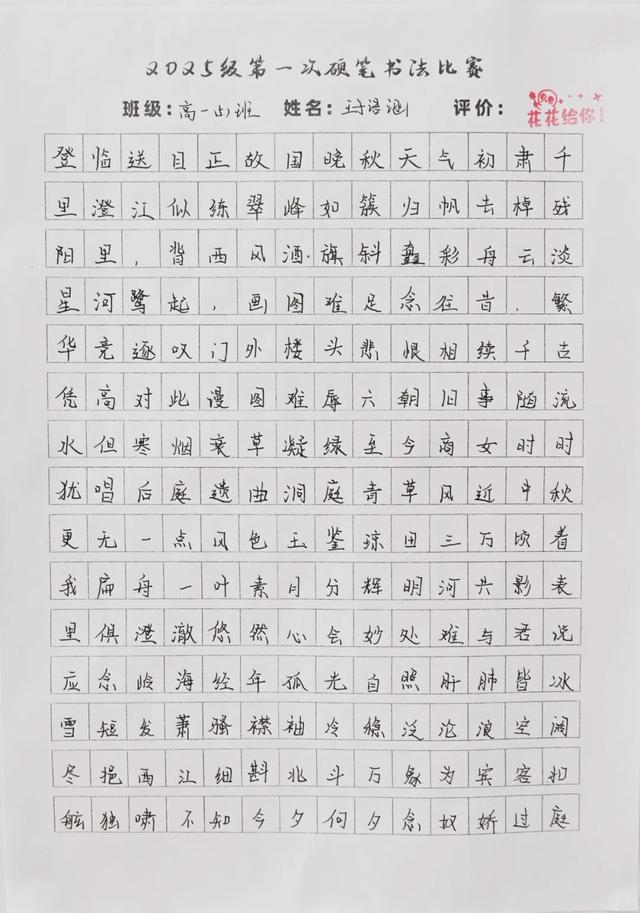 2025级第一次硬笔书法比赛
班级：高一（5）班 姓名： 评价：
花花给你！
登临送目正故国晚秋天气初肃千
里澄江似练翠峰如簇归帆去棹残
阳里，背西风酒旗斜矗彩舟云淡
星河鹭起，画图难足念往昔，繁
华竞逐叹门外楼头悲恨相续千古
凭高对此漫图难辱六朝旧事随流
水但寒烟衰草凝绿至今商女时时
犹唱后庭遗曲洞庭青草风近中秋
更无一点风色玉鉴琼田三万顷着
我扁舟一叶素月分辉明河共影表
里俱澄澈悠然心会妙处难与君说
应念岭海经年孤光自照肝肺皆冰
雪短发萧骚襟袖冷稳泛沧浪空阔
尽挹西江细斟北斗万象为宾客扣
舷独啸不知今夕何夕念奴娇过庭